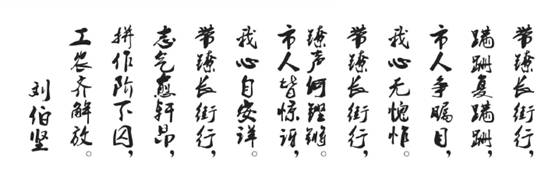 带镣长街行，
蹒跚复蹒跚，
市人争瞩目，
我心无愧怍。
带镣长街行，
镣声何铿锵，
市人皆惊讶，
我心自安详。
带镣长街行，
志气愈轩昂，
拼作阶下囚，
工农齐解放。
刘伯坚